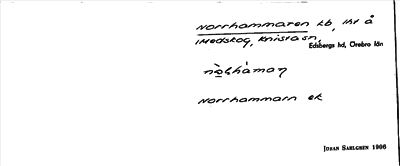 Norrhammaren kb, iht å
iMedskog, Knista sn,
Edsbergs hd, Örebro län
nòl̥hámaŋ
Norrhammarn ek
JORAN SAHLGREN 1906